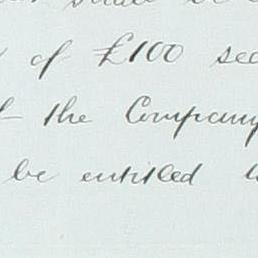 of £100 sec
the Company
be entitled